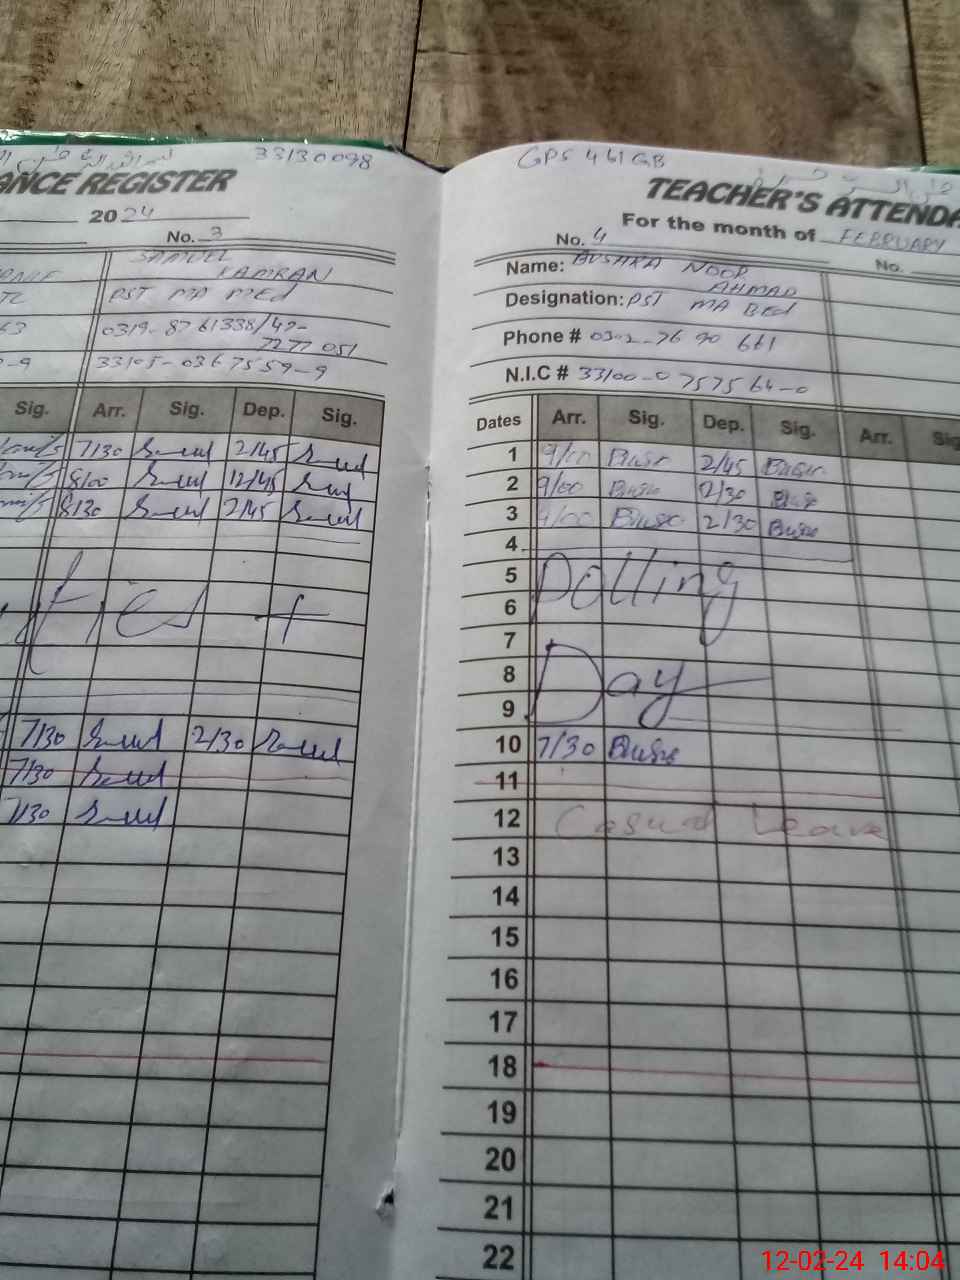 33130098
ANCE REGISTER
2024
No. 3
SAMUEL
KAMRAN
PST MA MEd
0319-8761338/47-
7277051
33105-0367559-9
Sig. Arr. Sig. Dep. Sig.
7/30 2/45
8/00 12/45
8/30 2/45
7/30 2/30
7/30
7/30
GPS 461 GB
TEACHER'S ATTENDA
For the month of FEBRUARY
No. 4 No.
Name: BUSHRA NOOR
AHMAD
Designation: PST MA BEd
Phone # 0302-76 90 661
N.I.C # 33100-0757564-0
Dates Arr. Sig. Dep. Sig. Arr. Sig
1 9/00 2/45
2 9/00 12/30
3 9/00 2/30
4
5 Polling
6
7
8 Day
9
10 7/30
11
12 Casual Leave
13
14
15
16
17
18
19
20
21
22
12-02-24 14:04